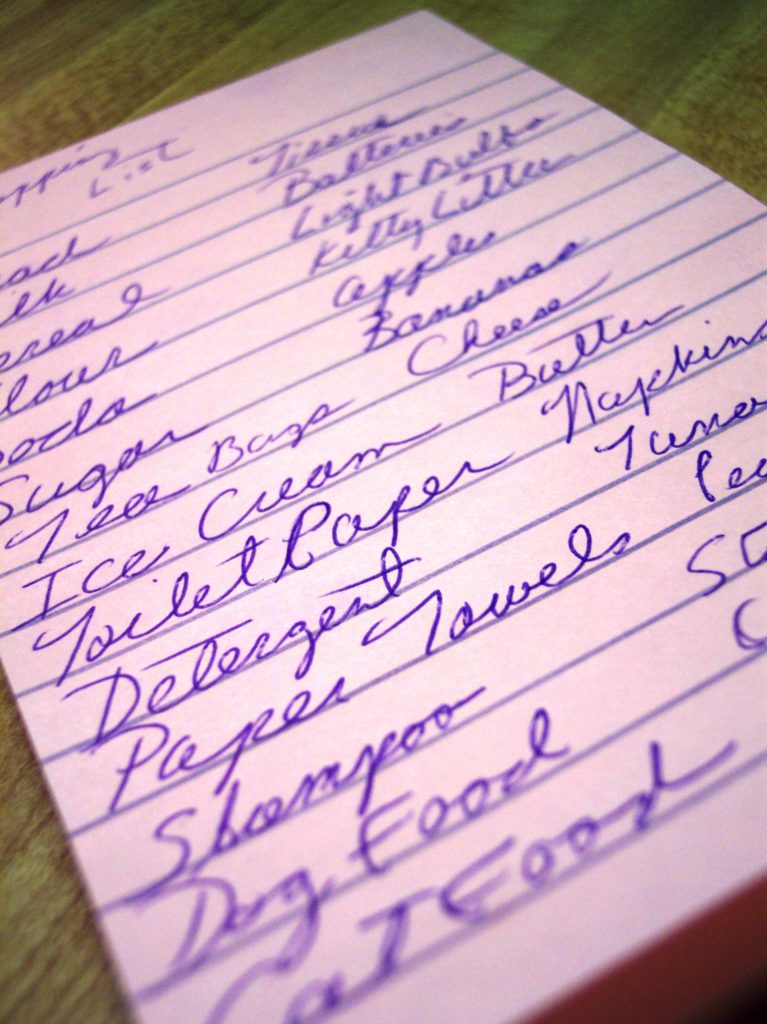 Shopping
List
Bread
Milk
Cereal
Flour
Soda
Sugar
Tea Bags
Ice Cream
Toilet Paper
Detergent
Paper Towels
Shampoo
Dog Food
Cat Food
Tissue
Batteries
Light Bulbs
Kitty Litter
apples
Bananas
Cheese
Butter
Napkins
Tuna